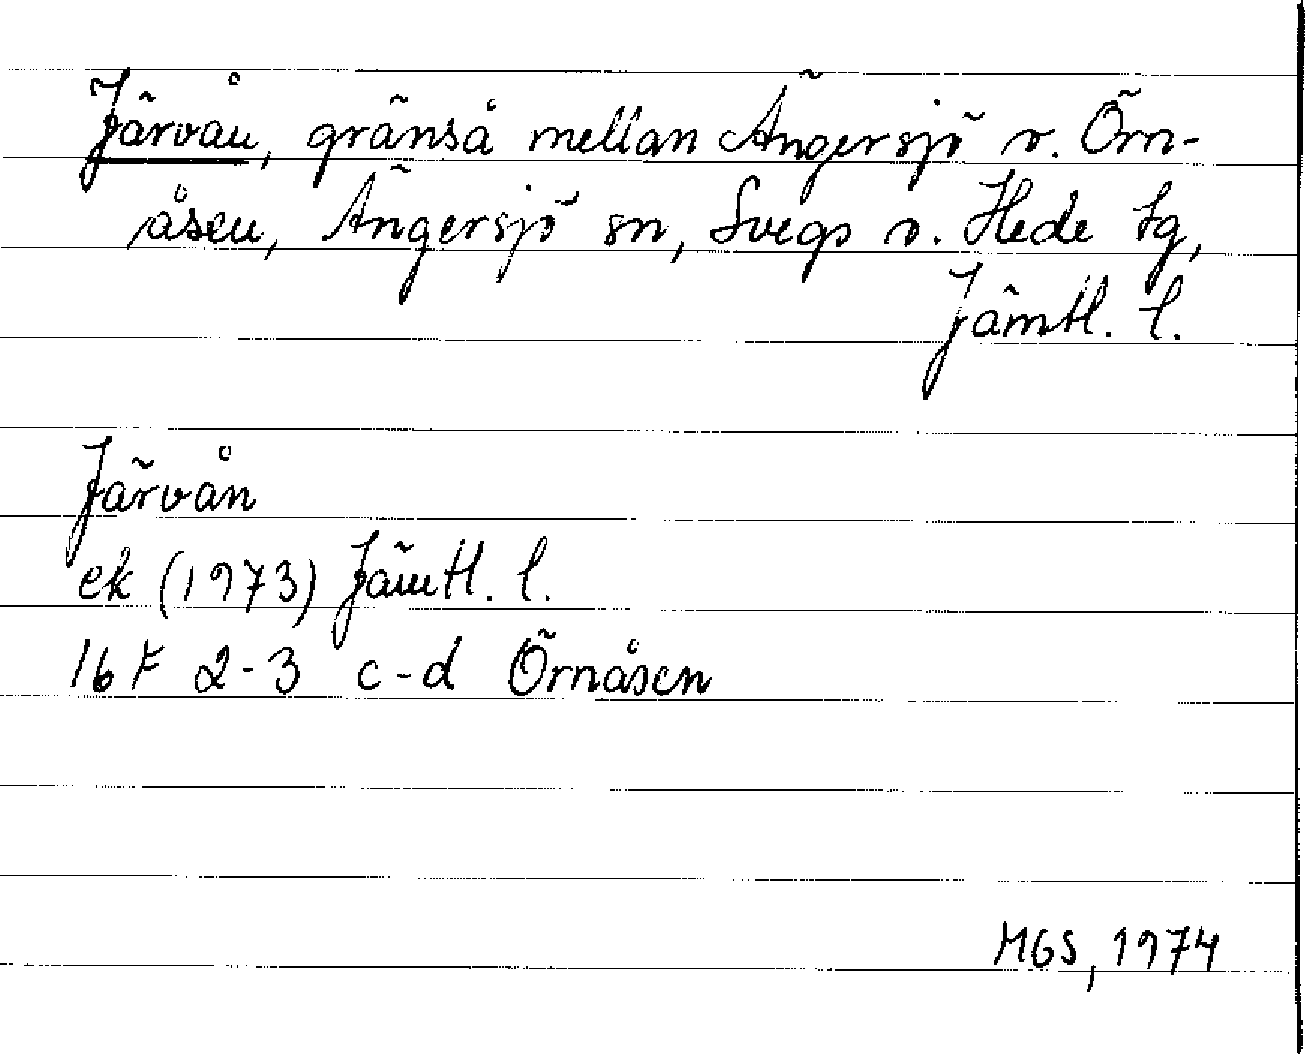 Järvån, gränså mellan Ängersjö o. Örn-
åsen, Ängersjö sn, Svegs o. Hede tg,
Jämtl. l.
Järvån
ek (1973) Jämtl. l.
16 F 2-3 c-d Örnåsen
MGS, 1974